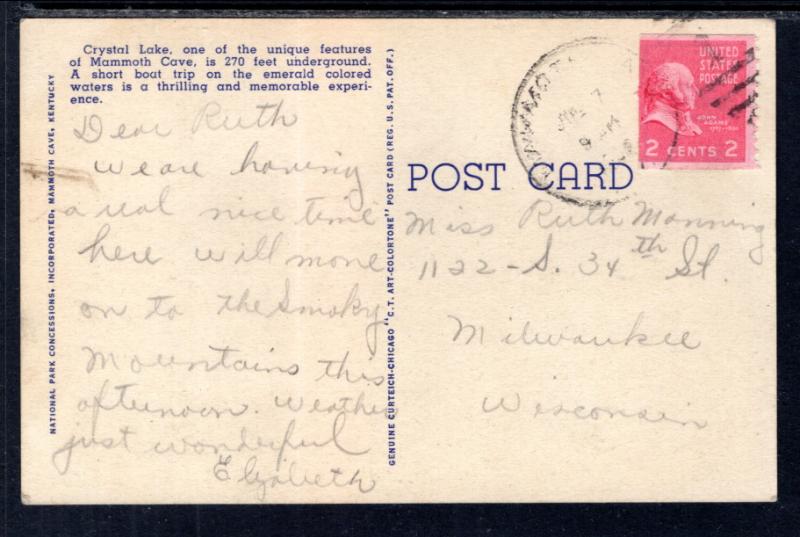 Crystal Lake, one of the unique features
of Mammoth Cave, is 270 feet underground.
A short boat trip on the emerald colored
waters is a thrilling and memorable experi-
ence.
Dear Ruth
We are having
a real nice time
here will move
on to the Smoky
Mountains this
afternoon. Weather
just wonderful
Elizabeth
NATIONAL PARK CONCESSIONS, INCORPORATED, MAMMOTH CAVE, KENTUCKY
GENUINE CURTEICH-CHICAGO "C.T. ART-COLORTONE" POST CARD (REG. U.S. PAT. OFF.)
POST CARD
UNITED
STATES
POSTAGE
JOHN
ADAMS
2 CENTS 2
MAMMOTH
7
9
Miss Ruth Manning
1122 - S. 34th St.
Milwaukee
Wisconsin